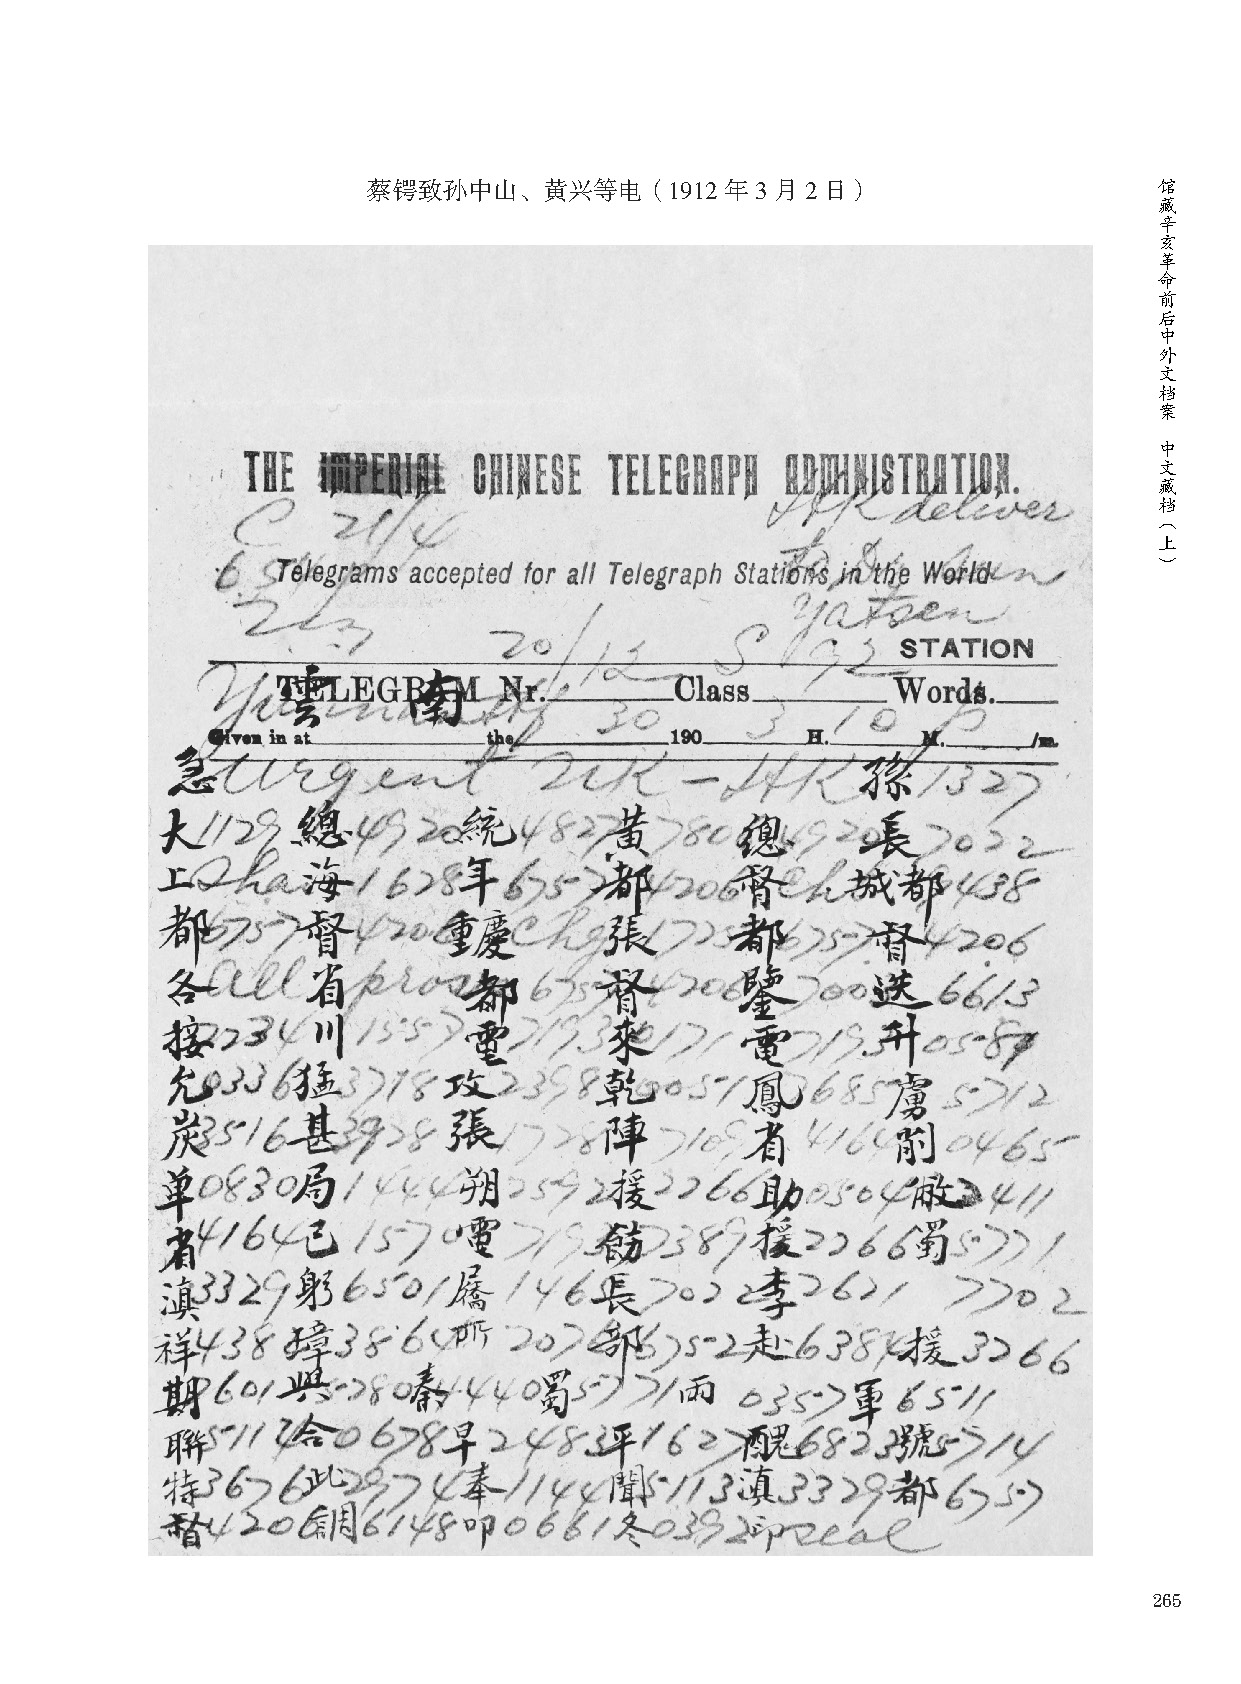 蔡锷致孙中山、黄兴等电（1912 年 3 月 2 日）
馆藏辛亥革命前后中外文档案 中文藏档（上）
THE IMPERIAL CHINESE TELEGRAPH ADMINISTRATION.
C 21/4 HK deliver
Telegrams accepted for all Telegraph Stations in the World
Yatsen
20/12 S 92 STATION
雲南 TELEGRAM Nr. Class Words.
30 3 10 P
Given in at the 190 H. M. /m.
急 Urgent HK 孫 1327
大 1129 總 4920 統 4827 黃 7806 總 4920 長 7022
上 Sha 海 1628 年 6757 都 4206 督 Ch 城都 9438
都 6757 督 4206 重慶 Chg 張 1725 都 6757 督 4206
各 all 省 pros 都 6757 督 4206 鑒 7003 迭 6613
接 2234 川 1557 電 7193 來 0171 電 7193 升 0581
允 0336 猛 3718 攻 2398 乾 0051 鳳 3685 虜 5712
炭 3516 甚 3928 張 1728 陣 7109 省 4164 削 0465
单 0830 局 1444 朔 2592 援 2266 助 0504 敝 2411
省 4164 已 1570 電 7193 飭 7389 援 2266 蜀 5771
滇 3329 躬 6501 屬 1466 長 7022 李 2621 7702
祥 4382 璋 3864 所 2076 部 6752 赴 6384 援 3266
期 2601 興 5280 秦 4440 蜀 5771 兩 0357 軍 6511
聯 5114 合 0678 早 2483 平 1627 醜 6823 號 5714
特 3676 此 2974 奉 1144 聞 5113 滇 3329 都 6757
督 4206 鍔 6148 叩 0661 冬 0392 印 seal
265